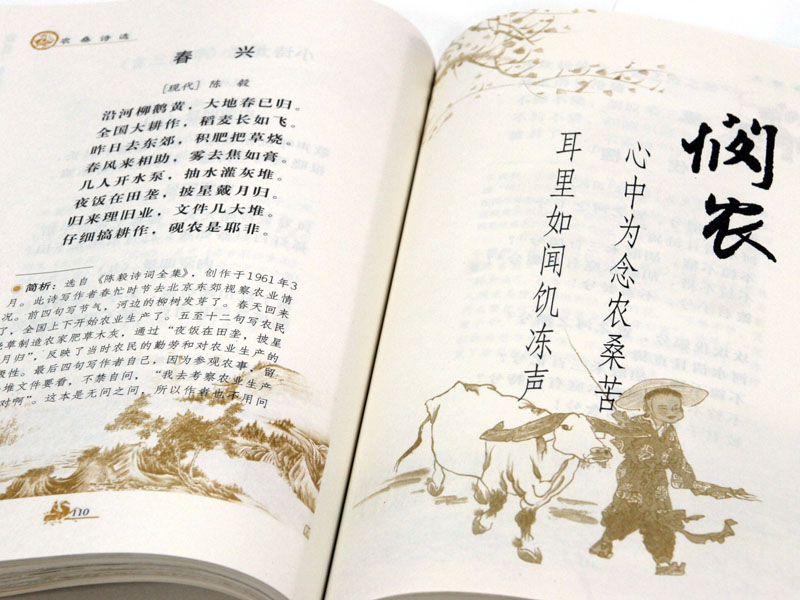 农桑诗选
春 兴
[现代] 陈 毅
沿河柳鹅黄，大地春已归。
全国大耕作，稻麦长如飞。
昨日去东郊，积肥把草烧。
春风来相助，雾去焦如膏。
几人开水泵，抽水灌灰堆。
夜饭在田垄，披星戴月归。
归来理旧业，文件几大堆。
仔细搞耕作，砚农是耶非。
简析：选自《陈毅诗词全集》，创作于1961年3
月。此诗写作者春忙时节去北京东郊视察农业情
况。前四句写节气，河边的柳树发芽了。春天回来
了，全国上下开始农业生产了。五至十二句写农民
烧草制造农家肥草木灰，通过“夜饭在田垄，披星
月归”，反映了当时农民的勤劳和对农业生产的
极性。最后四句写作者自己，因为参观农事，留
堆文件要看，不禁自问，“我去考察农业生产
对啊”。这本是无问之问，所以作者也不用问
110
悯农
心中为念农桑苦
耳里如闻饥冻声